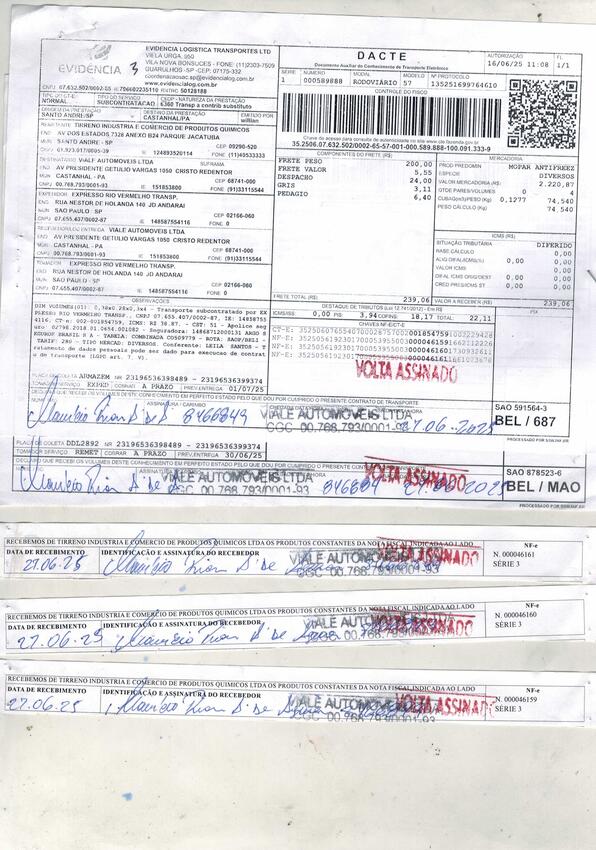 EVIDÊNCIA
3
EVIDENCIA LOGISTICA TRANSPORTES LTD
VIELA URGA, 950
VILA NOVA BONSUCES - FONE: (11)2303-7509
GUARULHOS -SP -CEP: 07175-332
coordenacaosac.sp@evidencialog.com.br
www.evidencialog.com.br
CNPJ 07.632.502/0002-65 IE 796602235110 EVIDÊNCIA 50128188
DACTE
Documento Auxiliar do Conhecimento de Transporte Eletrônico
AUTORIZAÇÃO
16/06/25 11:08
FL
1/1
SERIE NUMERO MODAL MODELO Nº PROTOCOLO
1 000589888 RODOVIÁRIO 57 135251699764610
CONTROLE DO FISCO
Chave de acesso para consulta de autenticidade no site www.cte.fazenda.gov.br
35.2506.07.632.502/0002-65-57-001-000.589.888-100.091.333-9
TIPO DO CT-E
NORMAL
TIPO DO SERVIÇO
SUBCONTRATACAO
CFOP - NATUREZA DA PRESTAÇÃO
6360 Transp a contrib substituto
SANTO ANDRE/SP
DESTINO DA PRESTAÇÃO
CASTANHAL/PA
EMITIDO POR
willian
REMETENTE TIRRENO INDUSTRIA E COMERCIO DE PRODUTOS QUIMICOS
END AV DOS ESTADOS 7328 ANEXO B24 PARQUE JACATUBA
MUN SANTO ANDRE - SP CEP 09290-520
CNPJ 61.923.017/0005-39 IE 124893520114 FONE (11)40533333
DESTINATÁRIO VIALE AUTOMOVEIS LTDA SUFRAMA
END AV PRESIDENTE GETULIO VARGAS 1050 CRISTO REDENTOR
MUN CASTANHAL - PA CEP 68741-000
CNPJ 00.768.793/0001-93 IE 151853800 FONE (91)33115544
EXPEDIDOR EXPRESSO RIO VERMELHO TRANSP.
END RUA NESTOR DE HOLANDA 140 JD ANDARAI
MUN SAO PAULO - SP CEP 02166-060
CNPJ 07.655.407/0002-87 IE 148587554116 FONE 0
RECEBEDOR/LOCAL ENTREGA VIALE AUTOMOVEIS LTDA
END AV PRESIDENTE GETULIO VARGAS 1050 CRISTO REDENTOR
MUN CASTANHAL - PA CEP 68741-000
CNPJ 00.768.793/0001-93 IE 151853800 FONE (91)33115544
TOMADOR EXPRESSO RIO VERMELHO TRANSP.
END RUA NESTOR DE HOLANDA 140 JD ANDARAI
MUN SAO PAULO - SP CEP 02166-060
CNPJ 07.655.407/0002-87 IE 148587554116 FONE 0
COMPONENTES DO FRETE (R$)
FRETE PESO 200,00
FRETE VALOR 5,55
DESPACHO 24,00
GRIS 3,11
PEDAGIO 6,40
FRETE TOTAL 239,06
VALOR A RECEBER (R$) 239,06
MERCADORIA
PROD PREDOMIN MOPAR ANTIFREEZ
ESPECIE DIVERSOS
VALOR MERCADORIA (R$) 2.220,87
QTDE PARES/VOLUMES 0 4
CUBAGEM(m3)/PESO (KG) 0,1277 74,540
PESO CÁLCULO (KG) 74,540
ICMS (R$)
SITUAÇÃO TRIBUTÁRIA DIFERIDO
BASE CALCULO 0,00
0,00 0,00
VALOR ICMS 0,00
0,00 0,00
CRED PRES/ICMS ST 0,00
OBSERVAÇÕES
DIM VOLUMES(01) 0,38x0,28x0,3x4 - Transporte subcontratado por EX
PRESSO RIO VERMELHO TRANSP., CNPJ 07.655.407/0002-87, IE: 14858755
4116, CT-e: 002-001854759, ICMS: RI 38.87. - CST: 51 - Apolice seg
uro: 02798.2018.01.0654.001082 - Seguradora: 14868712000131 ARGO S
EGUROS BRASIL S A - TABELA: COMBINADA CD509779 - ROTA: SAOP/BEL -
TARIF: 280 - TIPO MERCAD: DIVERSOS. Conferente: LEILA SANTOS - T
ratamento de dados pessoais pode ser dado para execucao de contrat
o de transporte (LGPD art. 7, V).
DESTAQUE DE TRIBUTOS (Lei 12.741/2012) - Em R$
ICMS/ISS 0,00 PIS 3,94 COFINS 18,17 TOTAL 22,11
CHAVES NF-E/CT-E
VOLTA ASSINADO
ARMAZEM 23196536398489 - 23196536399374
TOMADOR SERVIÇO EXPED COBRAR A PRAZO PREV.ENTREGA 01/07/25
DECLARO QUE RECEBI OS VOLUMES DESTE CONHECIMENTO EM PERFEITO ESTADO PELO QUE DOU POR CUMPRIDO O PRESENTE CONTRATO DE TRANSPORTE
ASSINATURA / CARIMBO
8466849
VIALE AUTOMOVEIS LTDA
CGC 00.768.793/0001-93
27.06.2025
SAO 591564-3
BEL / 687
PROCESSADO POR SSW.INF.BR
PLACA DE COLETA DDL2892 NR 23196536398489 - 23196536399374
TOMADOR SERVIÇO REMET COBRAR A PRAZO PREV.ENTREGA 30/06/25
DECLARO QUE RECEBI OS VOLUMES DESTE CONHECIMENTO EM PERFEITO ESTADO PELO QUE DOU POR CUMPRIDO O PRESENTE CONTRATO DE TRANSPORTE
VIALE AUTOMOVEIS LTDA
CGC 00.768.793/0001-93
VOLTA ASSINADO
SAO 878523-6
BEL / MAO
PROCESSADO POR SSW.INF.BR
RECEBEMOS DE TIRRENO INDUSTRIA E COMÉRCIO DE PRODUTOS QUIMICOS LTDA OS PRODUTOS CONSTANTES DA NOTA FISCAL INDICADA AO LADO
DATA DE RECEBIMENTO IDENTIFICAÇÃO E ASSINATURA DO RECEBEDOR
27.06.25
VIALE AUTOMOVEIS
CGC 00.768.793/0001-93
VOLTA ASSINADO
NF-e
N. 000046161
SÉRIE 3
RECEBEMOS DE TIRRENO INDUSTRIA E COMÉRCIO DE PRODUTOS QUIMICOS LTDA OS PRODUTOS CONSTANTES DA NOTA FISCAL INDICADA AO LADO
DATA DE RECEBIMENTO IDENTIFICAÇÃO E ASSINATURA DO RECEBEDOR
27.06.25
VIALE AUTOMOVEIS
CGC 00.768.793/0001-93
VOLTA ASSINADO
NF-e
N. 000046160
SÉRIE 3
RECEBEMOS DE TIRRENO INDUSTRIA E COMÉRCIO DE PRODUTOS QUIMICOS LTDA OS PRODUTOS CONSTANTES DA NOTA FISCAL INDICADA AO LADO
DATA DE RECEBIMENTO IDENTIFICAÇÃO E ASSINATURA DO RECEBEDOR
27.06.25
VIALE AUTOMOVEIS
CGC 00.768.793/0001-93
VOLTA ASSINADO
NF-e
N. 000046159
SÉRIE 3